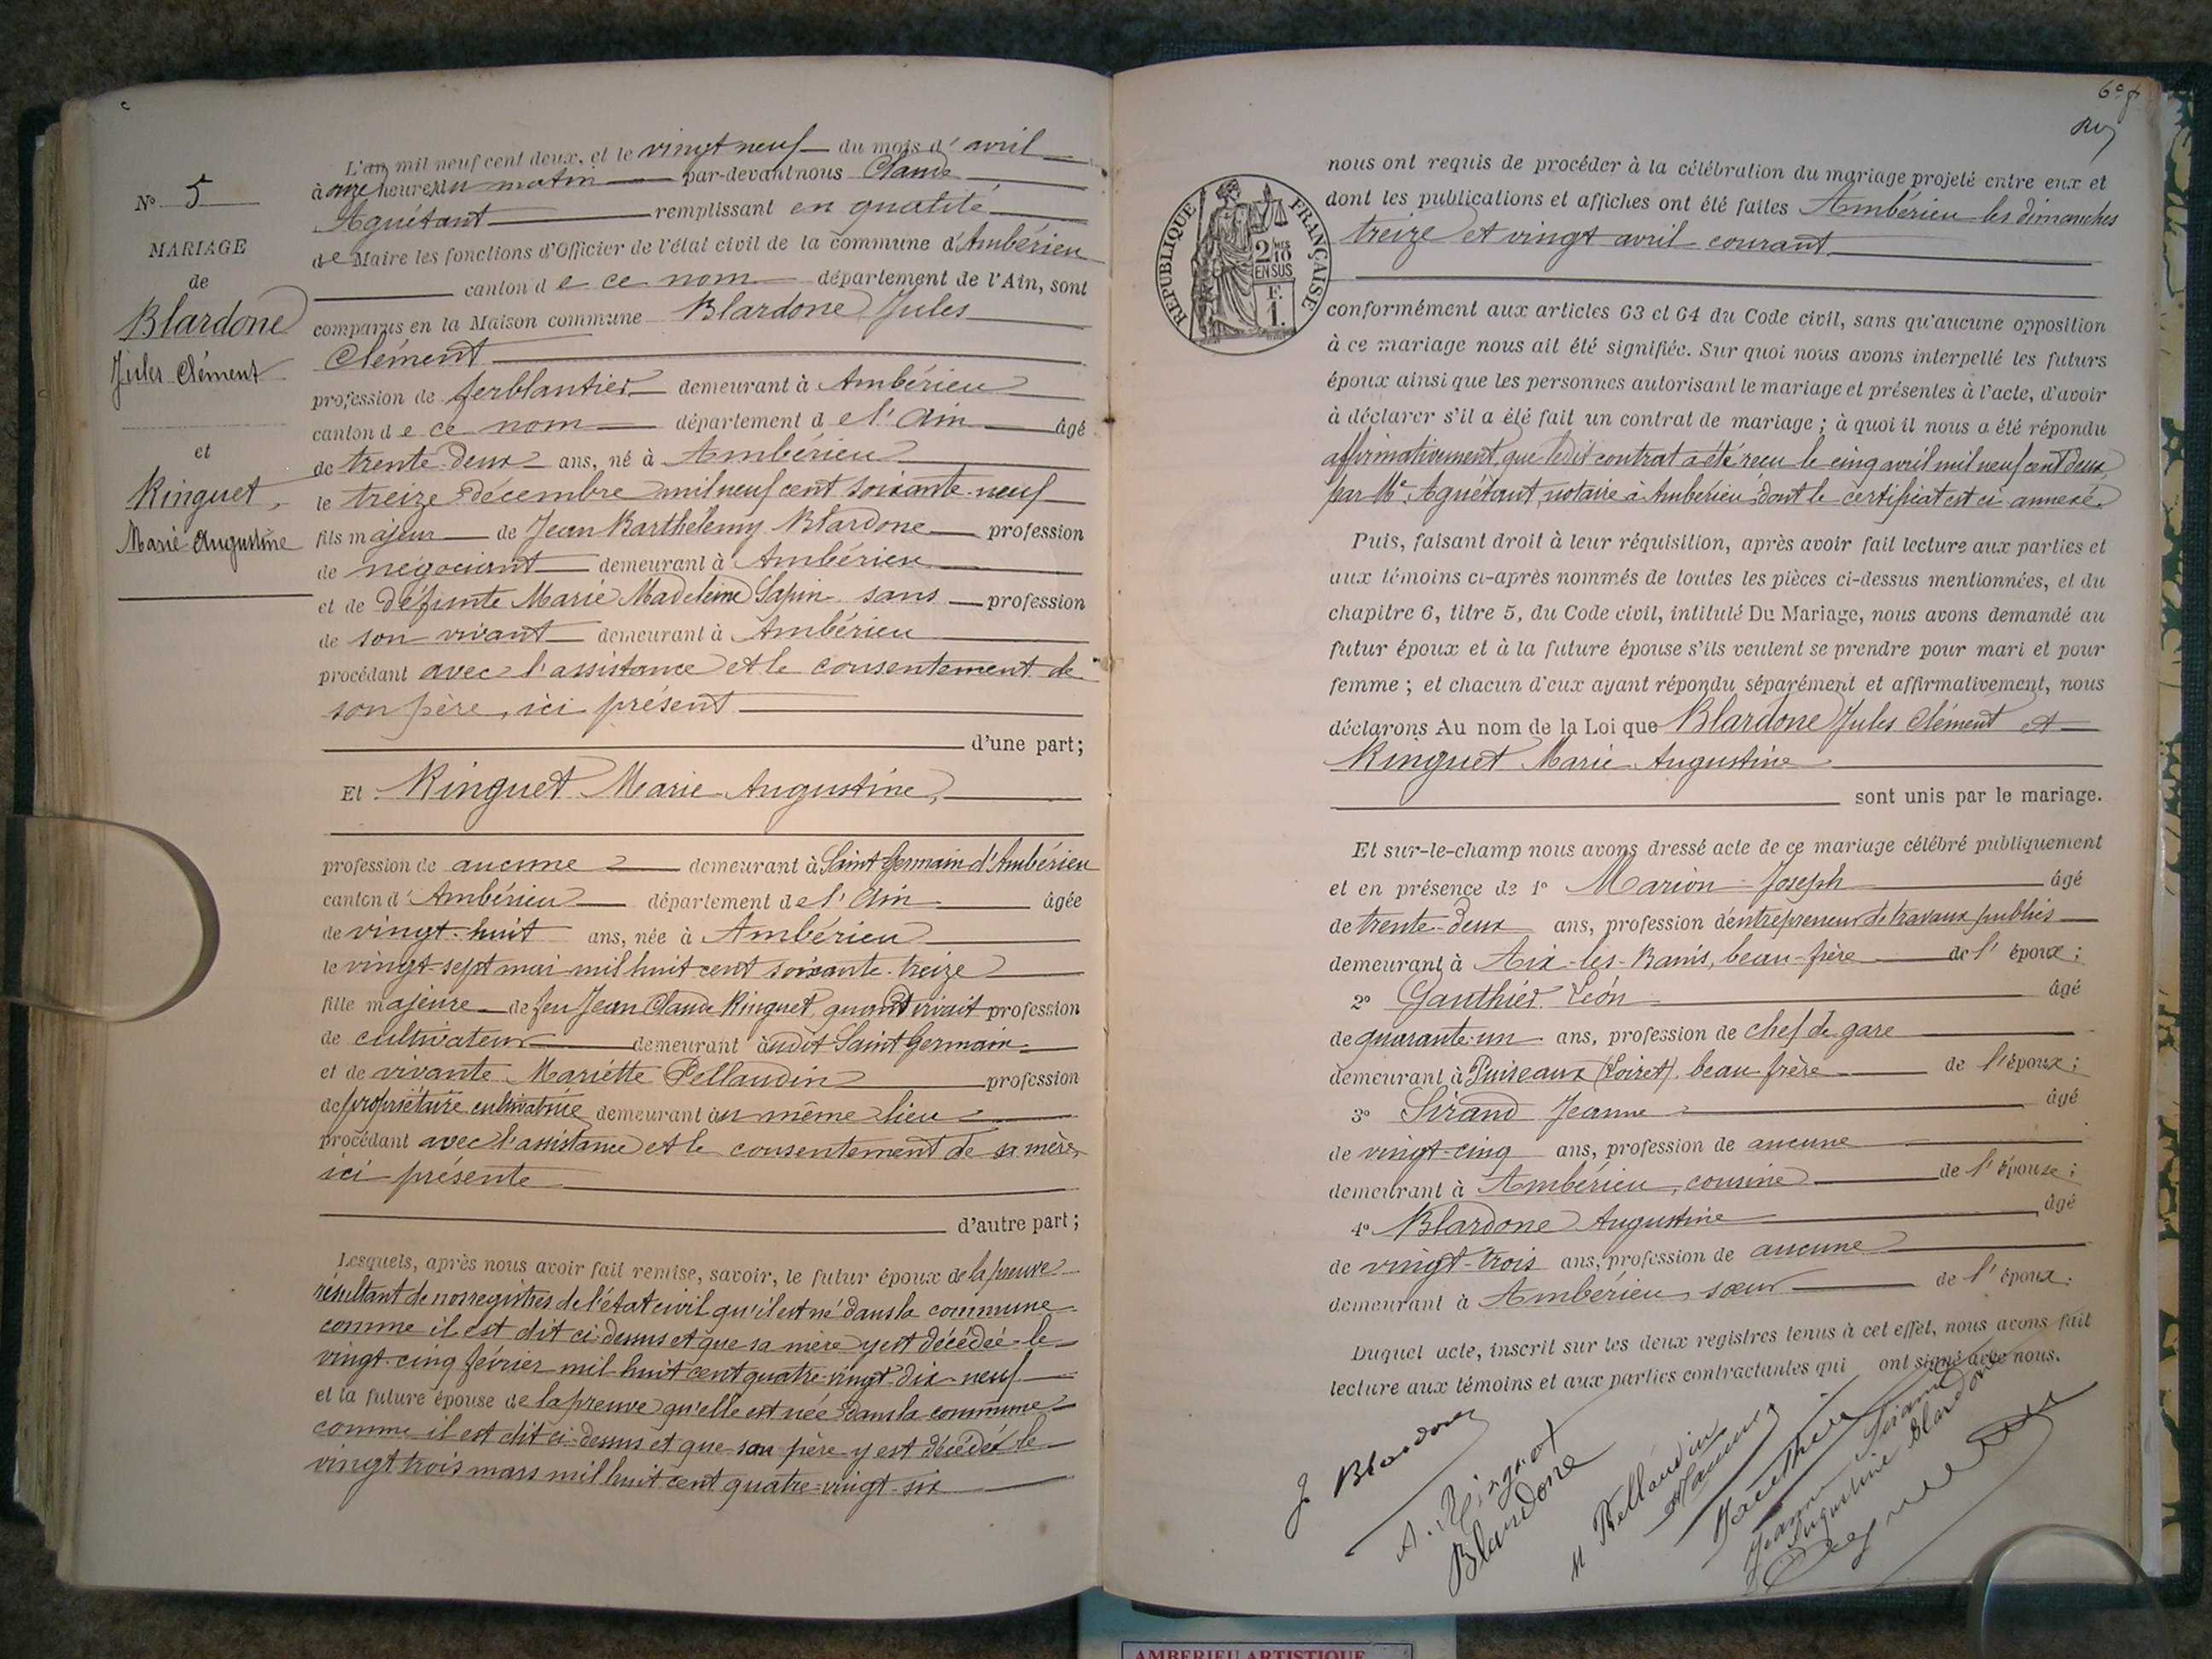 N° 5
MARIAGE
de
Blardone
Jules Clément
et
Ringuet,
Marie Augustine
L'an mil neuf cent deux, et le vingt neuf du mois d'avril
à onze heures du matin par-devant nous Claude
Aguétant remplissant en qualité
de Maire les fonctions d'Officier de l'état civil de la commune d'Ambérieu
canton de ce nom département de l'Ain, sont
comparus en la Maison commune Blardone Jules
Clément
profession de ferblantier demeurant à Ambérieu
canton de ce nom département de l'Ain âgé
de trente-deux ans, né à Ambérieu
le treize décembre mil neuf cent soixante-neuf
fils majeur de Jean Barthélemy Blardone profession
de négociant demeurant à Ambérieu
et de défunte Marie Madeleine Sapin sans profession
de son vivant demeurant à Ambérieu
procédant avec l'assistance et le consentement de
son père, ici présent
d'une part;
Et Ringuet Marie Augustine,
profession de aucune demeurant à Saint Germain d'Ambérieu
canton d'Ambérieu département de l'Ain âgée
de vingt-huit ans, née à Ambérieu
le vingt-sept mai mil huit cent soixante-treize
fille majeure de feu Jean Claude Ringuet, quand vivait profession
de cultivateur demeurant audit Saint Germain
et de vivante Mariette Pellaudin profession
de propriétaire cultivatrice demeurant au même lieu
procédant avec l'assistance et le consentement de sa mère,
ici présente
d'autre part;
Lesquels, après nous avoir fait remise, savoir, le futur époux de la preuve
résultant de nos registres de l'état civil qu'il est né dans la commune
comme il est dit ci-dessus et que sa mère y est décédée le
vingt-cinq février mil huit cent quatre-vingt-dix-neuf
et la future épouse de la preuve qu'elle est née dans la commune
comme il est dit ci-dessus et que son père y est décédé le
vingt trois mars mil huit cent quatre-vingt-six
6e f
RÉPUBLIQUE FRANÇAISE
2/10 EN SUS
F. 1.
nous ont requis de procéder à la célébration du mariage projeté entre eux et
dont les publications et affiches ont été faites Ambérieu les dimanches
treize et vingt avril courant
conformément aux articles 63 et 64 du Code civil, sans qu'aucune opposition
à ce mariage nous ait été signifiée. Sur quoi nous avons interpellé les futurs
époux ainsi que les personnes autorisant le mariage et présentes à l'acte, d'avoir
à déclarer s'il a été fait un contrat de mariage; à quoi il nous a été répondu
affirmativement, que ledit contrat a été reçu le cinq avril mil neuf cent deux
par Me Aguétant, notaire à Ambérieu dont le certificat est ci annexé.
Puis, faisant droit à leur réquisition, après avoir fait lecture aux parties et
aux témoins ci-après nommés de toutes les pièces ci-dessus mentionnées, et du
chapitre 6, titre 5, du Code civil, intitulé Du Mariage, nous avons demandé au
futur époux et à la future épouse s'ils veulent se prendre pour mari et pour
femme; et chacun d'eux ayant répondu séparément et affirmativement, nous
déclarons Au nom de la Loi que Blardone Jules Clément et
Ringuet Marie Augustine
sont unis par le mariage.
Et sur-le-champ nous avons dressé acte de ce mariage célébré publiquement
et en présence de 1° Marion Joseph âgé
de trente-deux ans, profession d'entrepreneur de travaux publics
demeurant à Aix-les-Bains, beau-frère de l'époux;
2° Gauthier Léon âgé
de quarante-un ans, profession de chef de gare
demeurant à Puiseaux (Loiret) beau frère de l'époux;
3° Sirand Jeanne âgé
de vingt-cinq ans, profession de aucune
demeurant à Ambérieu, cousine de l'épouse;
4° Blardone Augustine âgé
de vingt-trois ans, profession de aucune
demeurant à Ambérieu, sœur de l'époux.
Duquel acte, inscrit sur les deux registres tenus à cet effet, nous avons fait
lecture aux témoins et aux parties contractantes qui ont signé avec nous.
J. Blardone
A. Ringuet
Blardone
M Pellaudin
Jeanne Sirand
Augustine Blardone
AMBERIEU ARTISTIQUE